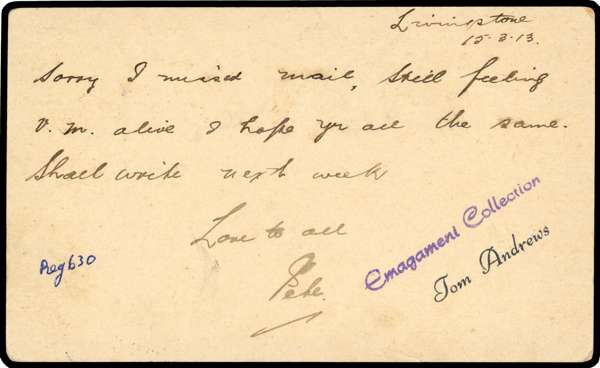 Livingstone
15.3.13.
Sorry I missed mail, still feeling
v. m. alive & hope yr all the same.
Shall write next week
Love to all
Pete.
Reg630
Emagament Collection
Tom Andrews